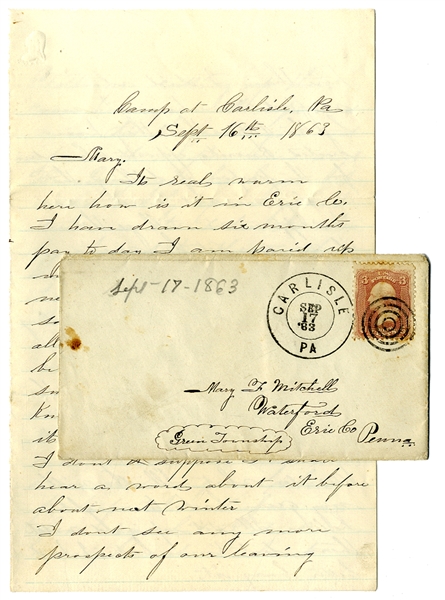 Camp at Carlisle, Pa
Sept 16th 1863
Mary.
Its real warm
here how is it in Erie Co.
I have drawn six months
pay to day I am paid up
Sept-17-1863
CARLISLE
SEP
17
'63
PA
3 3
Mary F Mitchell
Waterford
Erie Co Penna
Green Township
I dont suppose I shall
hear a word about it before
about next winter
I dont see any more
prospects of our leaving